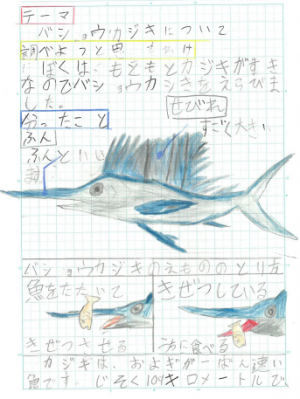 テーマ
バショウカジキについて
調べようと思ったわけ
ぼくは、もともとカジキがすき
なのでバショウカジキをえらびま
した。
せびれ
すごく大きい
分ったこと
ふん
ふんといい
バショウカジキのえもののとり方
魚をたたいて
きぜつさせる
きぜつしている
うちに食べる
カジキは、およぎが一ばん速い
魚です。じそく109キロメートルで、